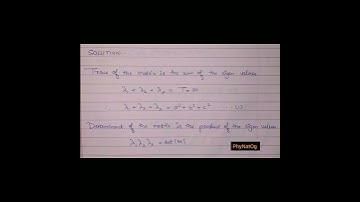 SOLUTION
Trace of the matrix is the sum of the eigen values
λ₁ + λ₂ + λ₃ = Tr M
∴ λ₁ + λ₂ + λ₃ = a² + b² + c²
Determinant of the matrix is the product of the eigen values
λ₁ λ₂ λ₃ = det [M]
PhyNatOg